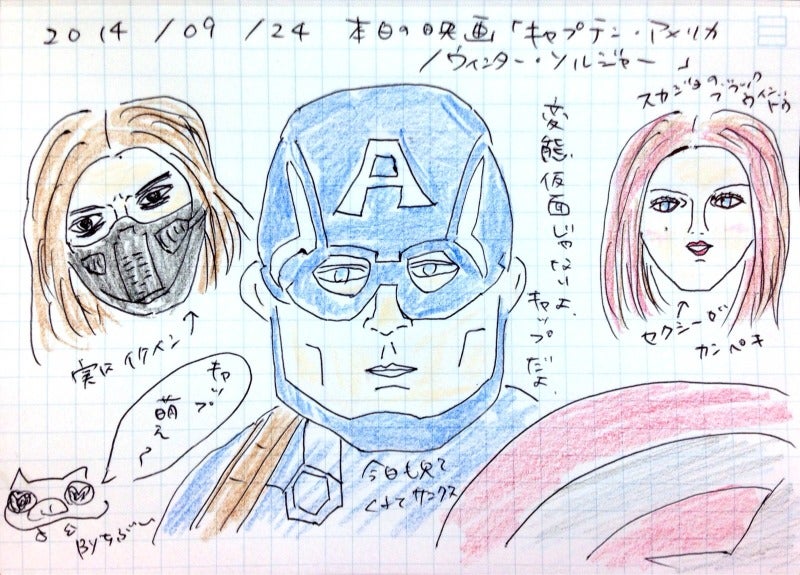 2014/09/24 本日の映画「キャプテン・アメリカ
/ウィンター・ソルジャー」
スカジョの
ブラック
ウィンドウ
変態仮面じゃないよ、
キャップだよ。
A
実にイケメン
セクシーが
カンペキ
キャップ
萌え〜
今日も見て
くれてサンクス
By ちぶー